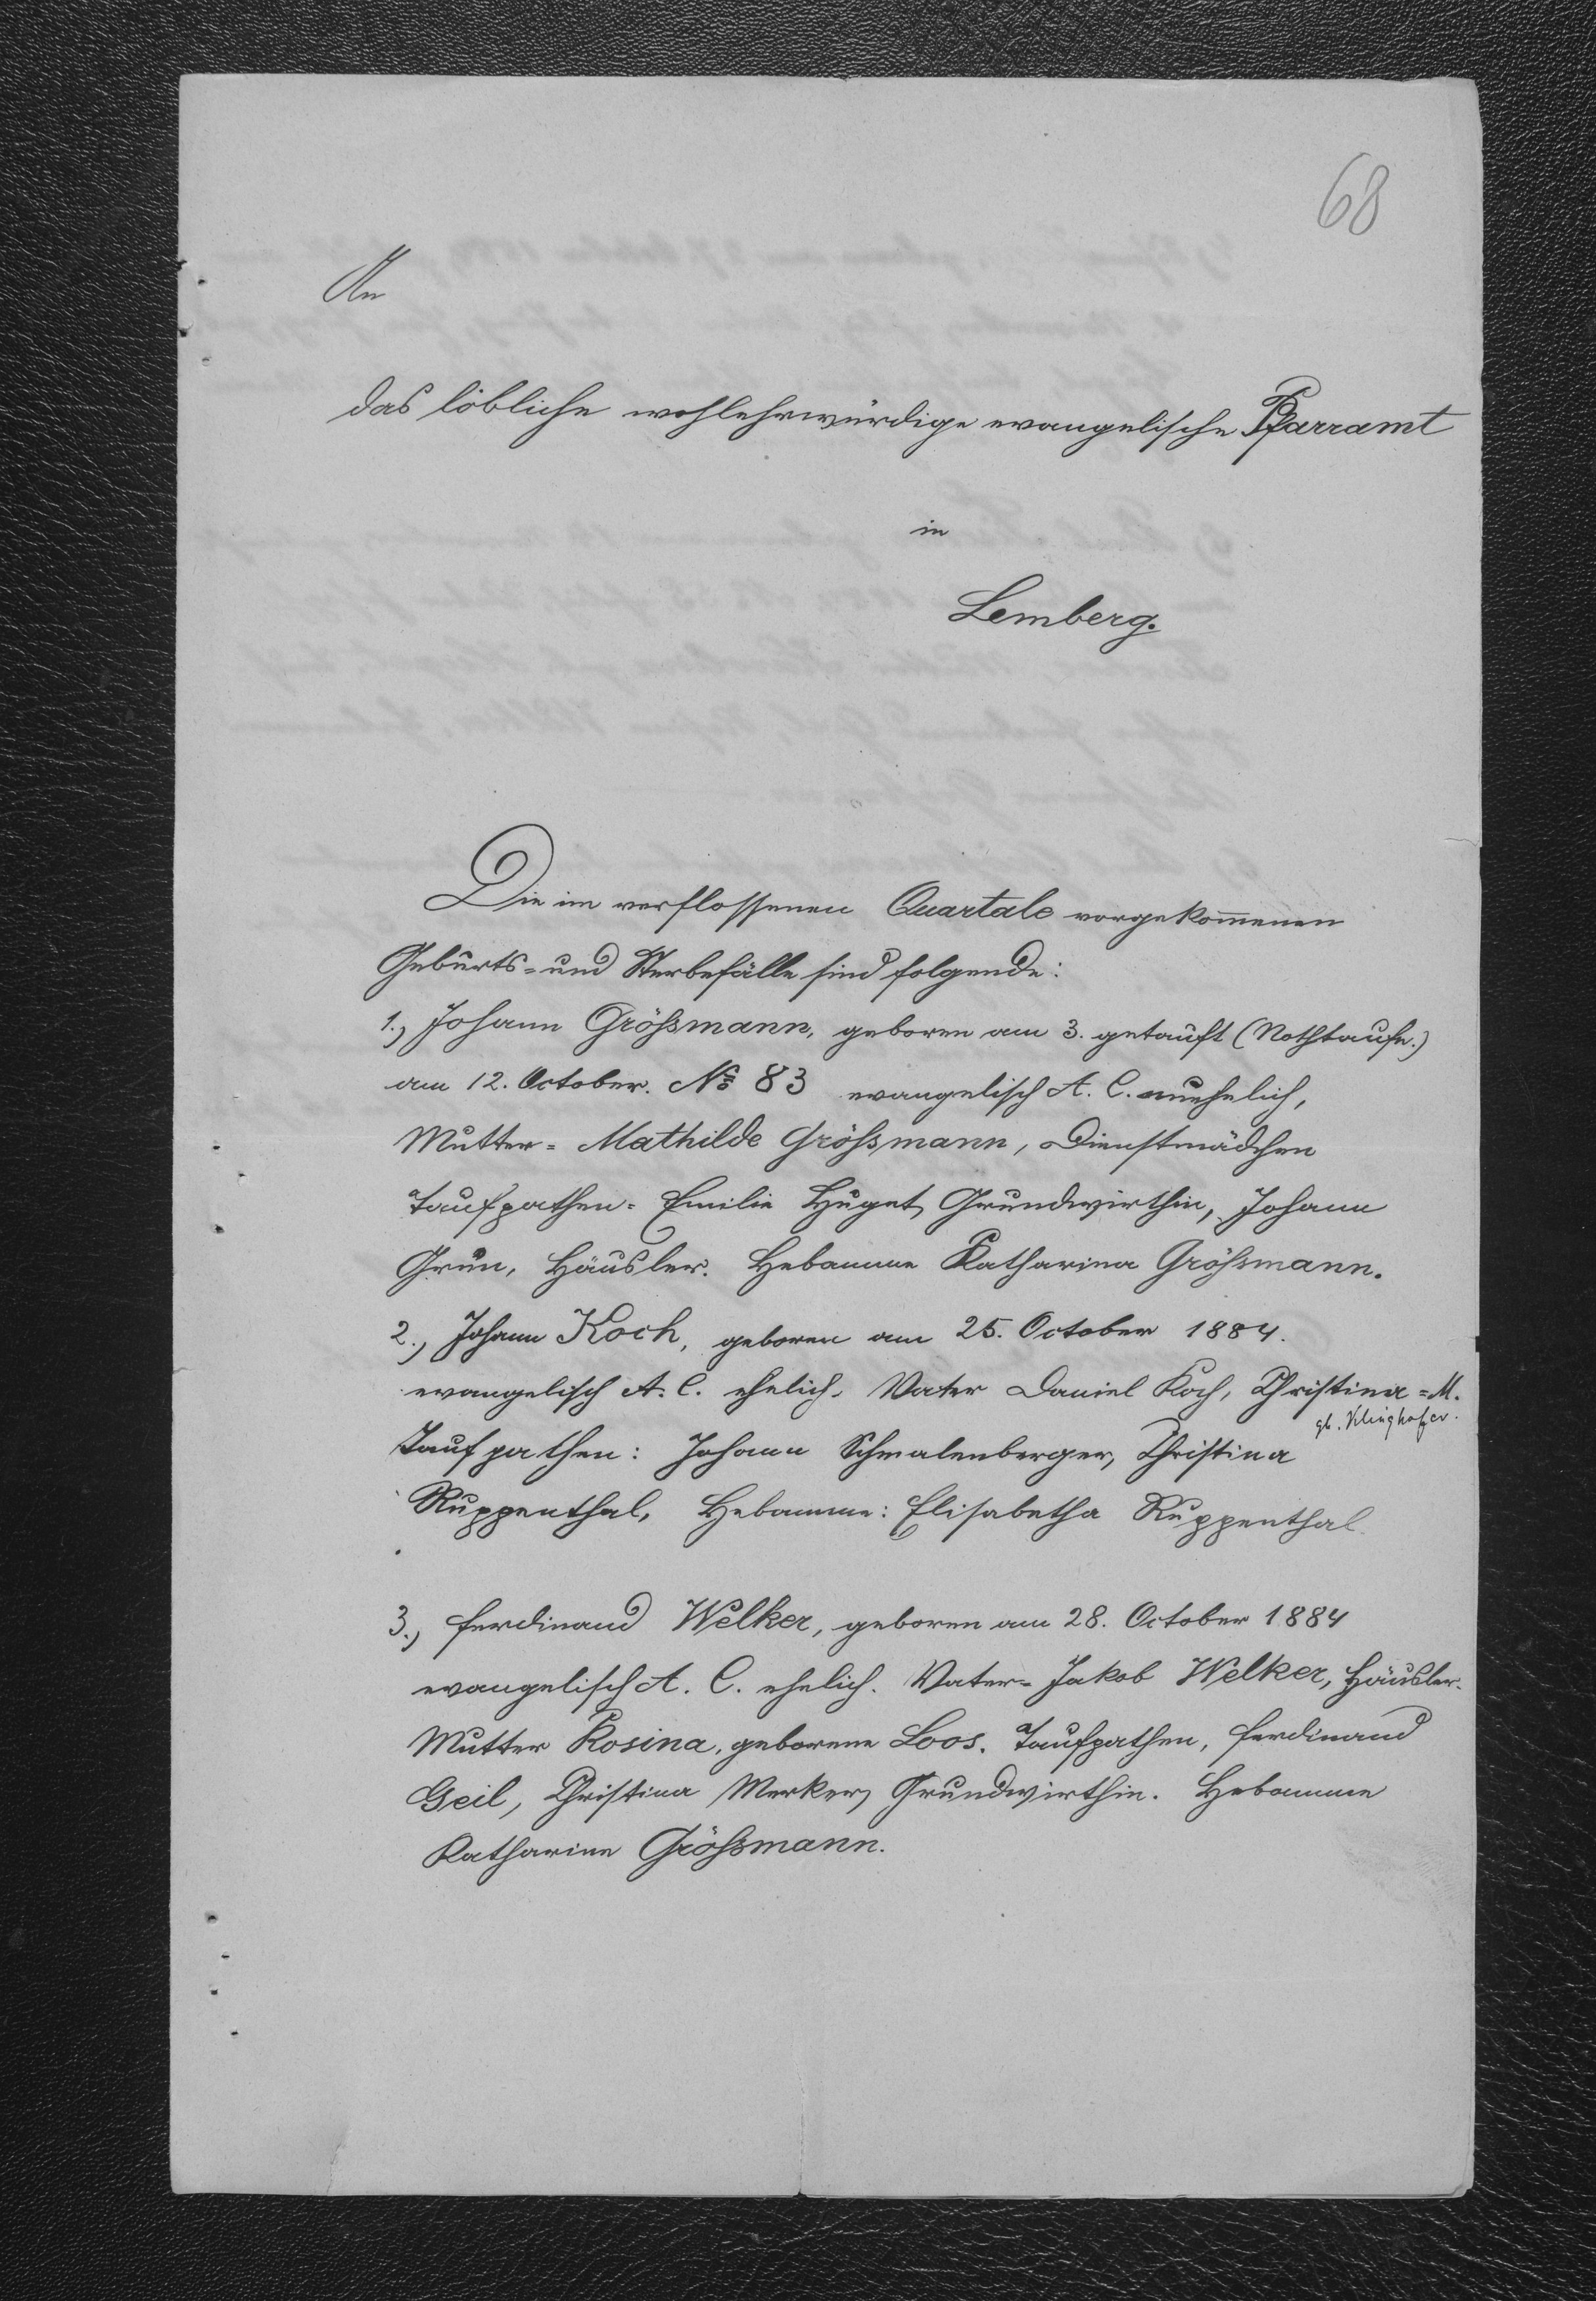 68
An
das löbliche wohlehrwürdige evangelische Pfarramt
in
Lemberg.
Die im verflossenen Quartale vorgekom̅enen
Geburts- und Sterbefälle sind folgende:
1., Johann Größmann, geboren am 3. getauft (Nothtaufe.)
am 12. October. No 83 evangelisch A. C. unehelich,
Mutter = Mathilde Größmann, Dienstmädchen
Taufpathen = Emilie Huget, Grundwirthin, Johann
Grün, Häusler. Hebamme Katharina Größmann.
2., Johann Koch, geboren am 25. October 1884.
evangelisch A. C. ehelich. Vater Daniel Koch, Christina = M.
gb. Klinghofer.
Taufpathen: Johann Schmalenberger, Christina
Ruppenthal, Hebamme: Elisabetha Ruppenthal.
3., Ferdinand Welker, geboren am 28. October 1884
evangelisch A. C. ehelich. Vater = Jakob Welker, Häusler.
Mutter Rosina, geborene Loos. Taufpathen, Ferdinand
Geil, Christina Merker, Grundwirthin. Hebamme
Katharine Größmann.